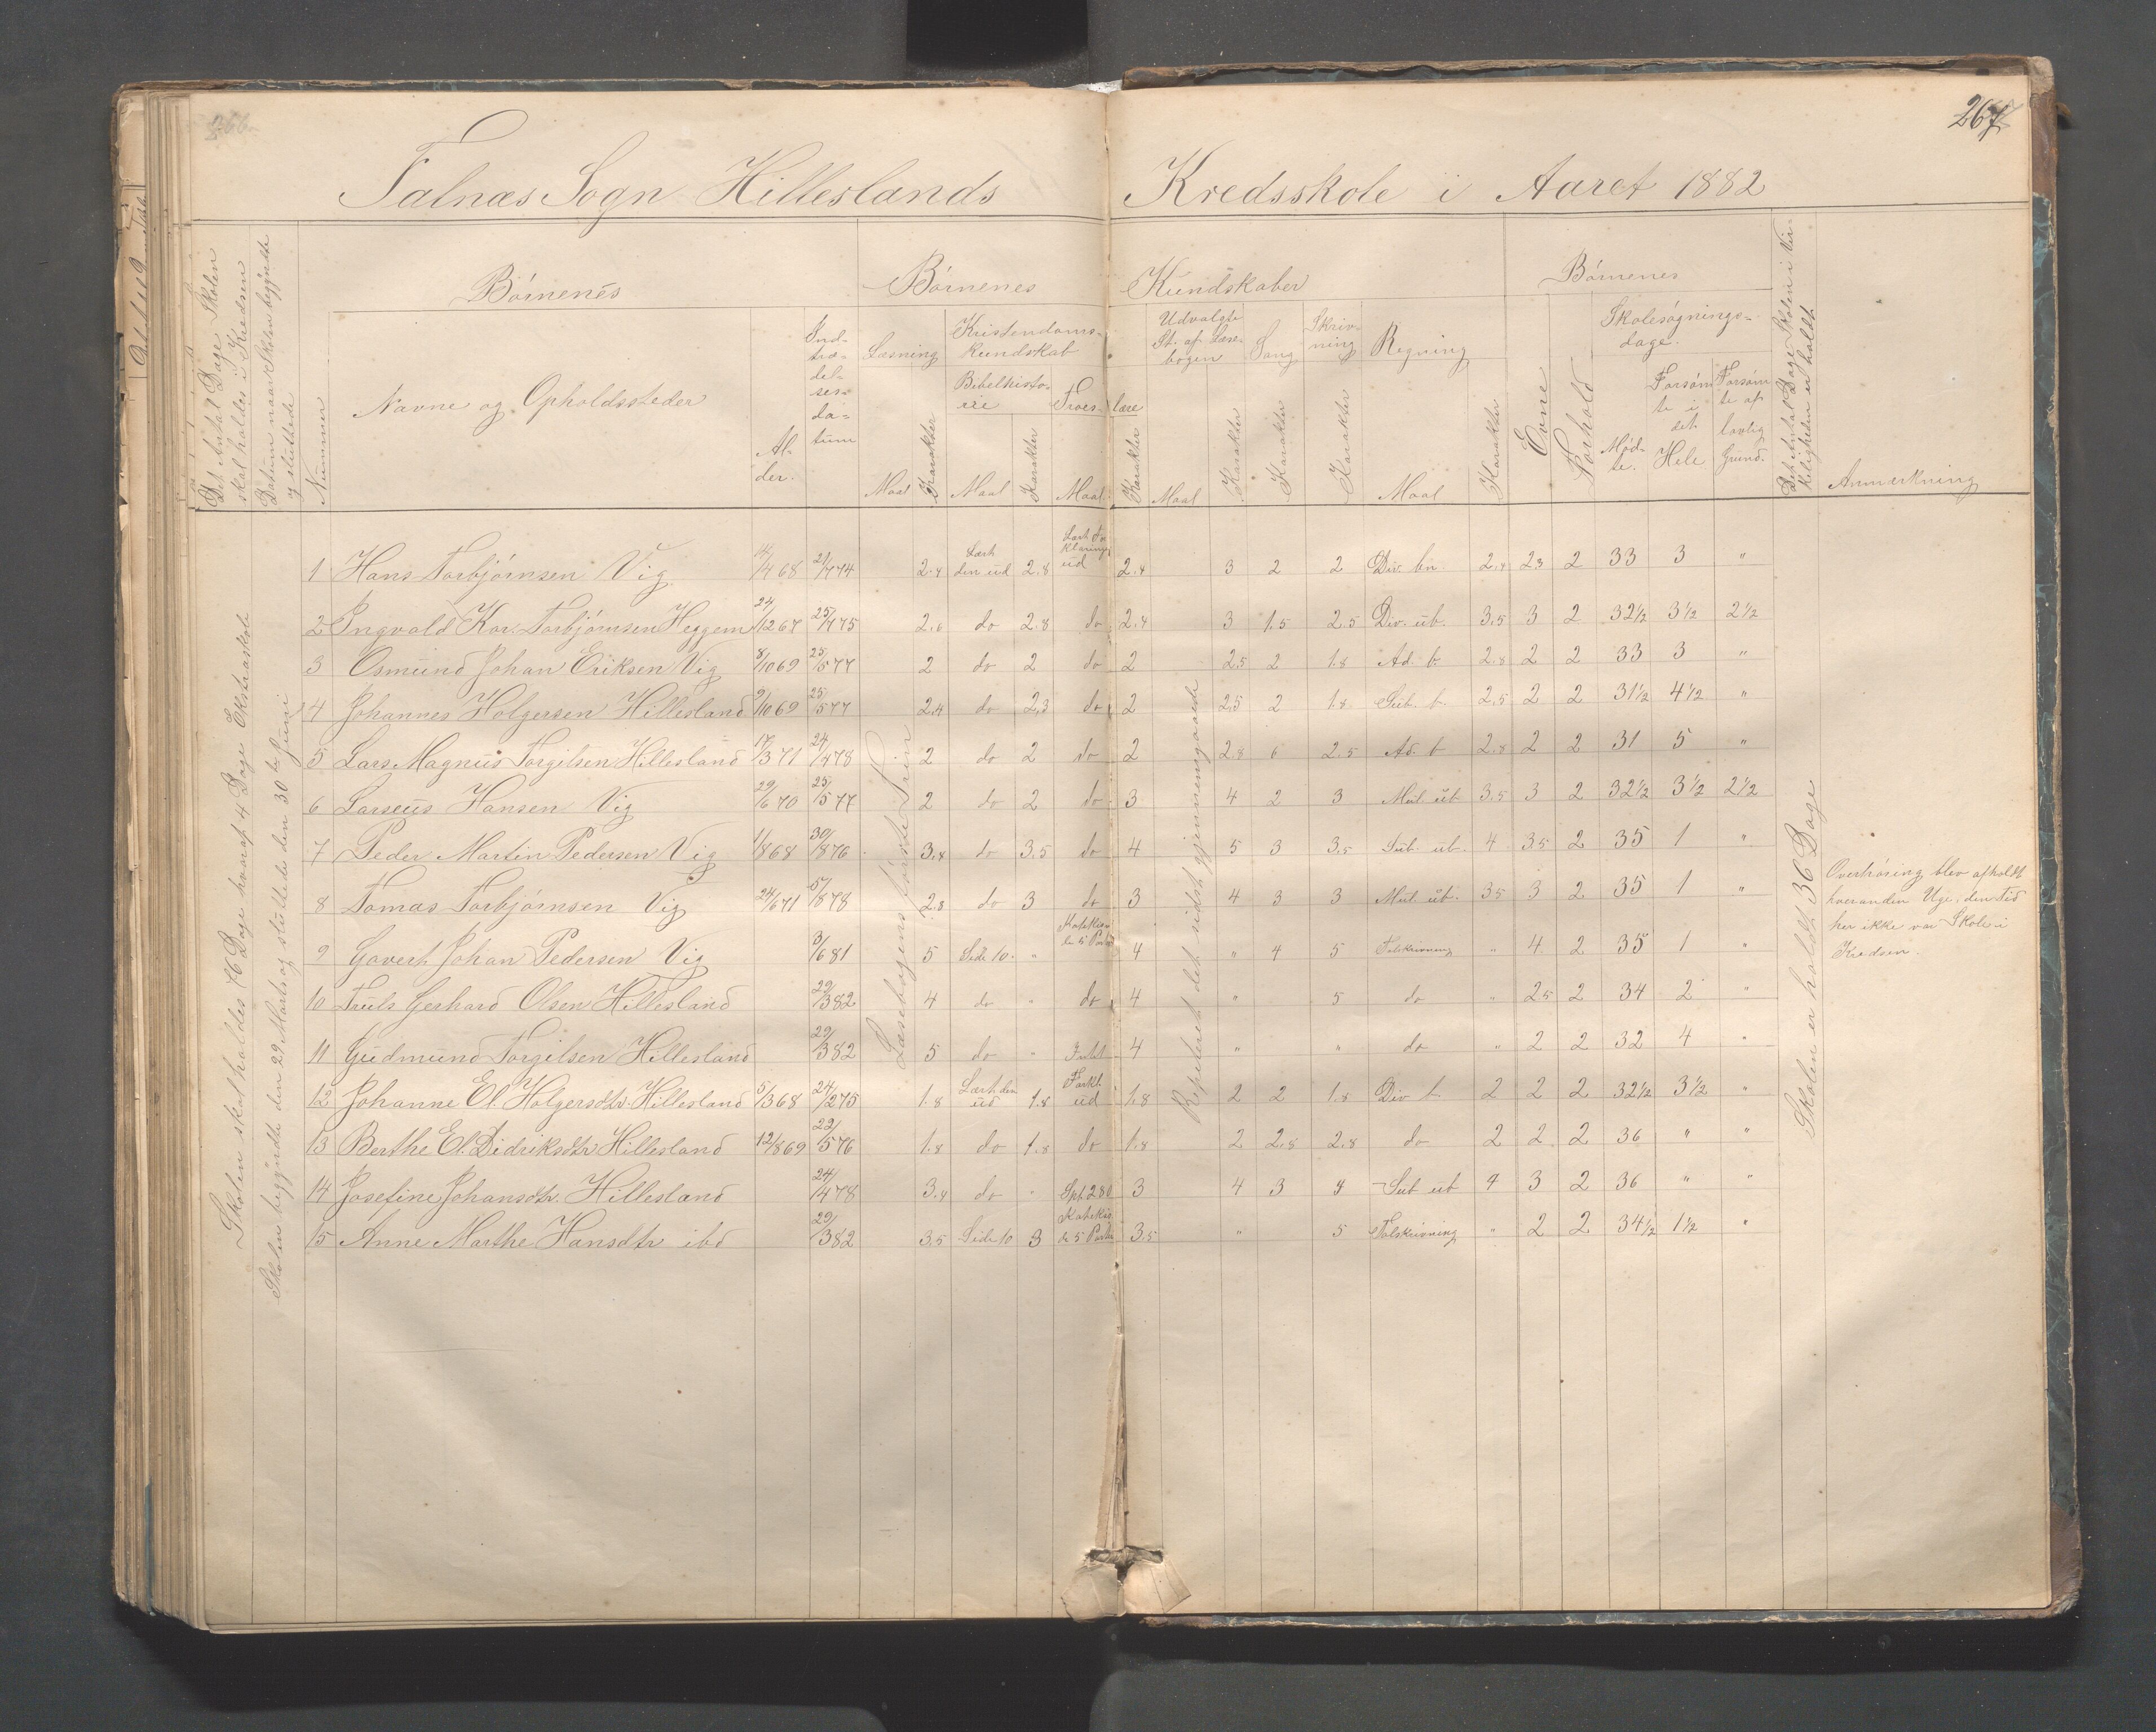 266
267
Falnæs Sogn Hilleslands Kredsskole i Aaret 1882
Det Antal Dage Skolen skal holdes i Kredsen
Datum naar Skolen begyndte og sluttede
Nummer
Børnenes
Navne og Opholdssteder
Alder.
Indtrædelsesdatum
Børnenes Kundskaber
Læsning
Maal
Karakter
Kristendomskundskab
Bibelhistorie
Maal
Karakter
Troeslære
Maal
Karakter
Udvalgte St. af Læsebogen
Maal
Karakter
Sang
Karakter
Skrivning
Karakter
Regning
Maal
Karakter
Børnenes
Evne
Forhold
Skolesøgningsdage.
Mødte.
Forsømte i det Hele
Forsømte af lovlig Grund.
Det Antal Dage Skolen i Virkeligheden er holdt
Anmærkning
Skolen skal holdes 76 Dage hvoraf 4 Dage Ekstraskole
Skolen begyndte den 29 Marts og sluttede den 30te Juni
Læsebogens første Trin
Repeteret det sidst gjennemgaaede
Skolen er holdt 36 Dage
1 Hans Torbjørnsen Vig 4/468 21/474 2.4 Lært den ud 2.8 Lært Forklaringen ud 2.4 3 2 2 Div. bn. 2.4 2.3 2 33 3 "
2 Ingvald Kor. Torbjørnsen Heggem 24/1267 25/475 2.6 do 2.8 do 2.4 3 1.5 2.5 Div. ub. 3.5 3 2 32½ 3½ 2½
3 Osmund Johan Eriksen Vig 8/1069 25/577 2 do 2 do 2 2.5 2 1.8 Ad. b. 2.8 2 2 33 3 "
4 Johannes Holgersen Hillesland 9/1069 25/577 2.4 do 2.3 do 2 2.5 2 1.8 Sub. b. 2.5 2 2 31½ 4½ "
5 Lars Magnus Torgilsen Hillesland 17/371 24/478 2 do 2 do 2 2.8 6 2.5 Ad. b 2.8 2 2 31 5 "
6 Larseus Hansen Vig 29/670 25/577 2 do 2 do 3 4 2 3 Mul. ub 3.5 3 2 32½ 3½ 2½
7 Peder Martin Pedersen Vig 1/868 30/876 3.4 do 3.5 do 4 5 3 3.5 Sub. ub. 4 3.5 2 35 1 "
8 Tomas Torbjørnsen Vig 24/671 5/878 2.8 do 3 do 3 4 3 3 Mul. ub. 3.5 3 2 35 1 "
9 Govert Johan Pedersen Vig 3/681 5 Side 10. " 4 " 4 5 Talskrivning " 4 2 35 1 "
10 Truls Gerhard Olsen Hillesland 29/382 4 do " do 4 " 5 do " 2.5 2 34 2 "
11 Gudmund Torgilsen Hillesland 29/382 5 do " 4 " " do " 2 2 32 4 "
12 Johanne El. Holgersdtr. Hillesland 5/368 24/275 1.8 Lært den ud 1.8 Forkl. ud 1.8 2 2 1.8 Div b. 2 2 2 32½ 3½ "
13 Berthe El. Didriksdtr Hillesland 12/869 22/576 1.8 do 1.8 do 1.8 2 2.8 2.8 do 2 2 2 36 " "
14 Josefine Johansdtr. Hillesland 24/478 3.4 do " Sp. 280 3 4 3 4 Sub ub 4 3 2 36 " "
15 Anne Marthe Hansdtr ibd 29/382 3.5 Side 10 3 3.5 " 5 Talskrivning " 2 2 34½ 1½ "
Overhøring blev afholdt
hveranden Uge, den Tid
her ikke var Skole i
Kredsen.